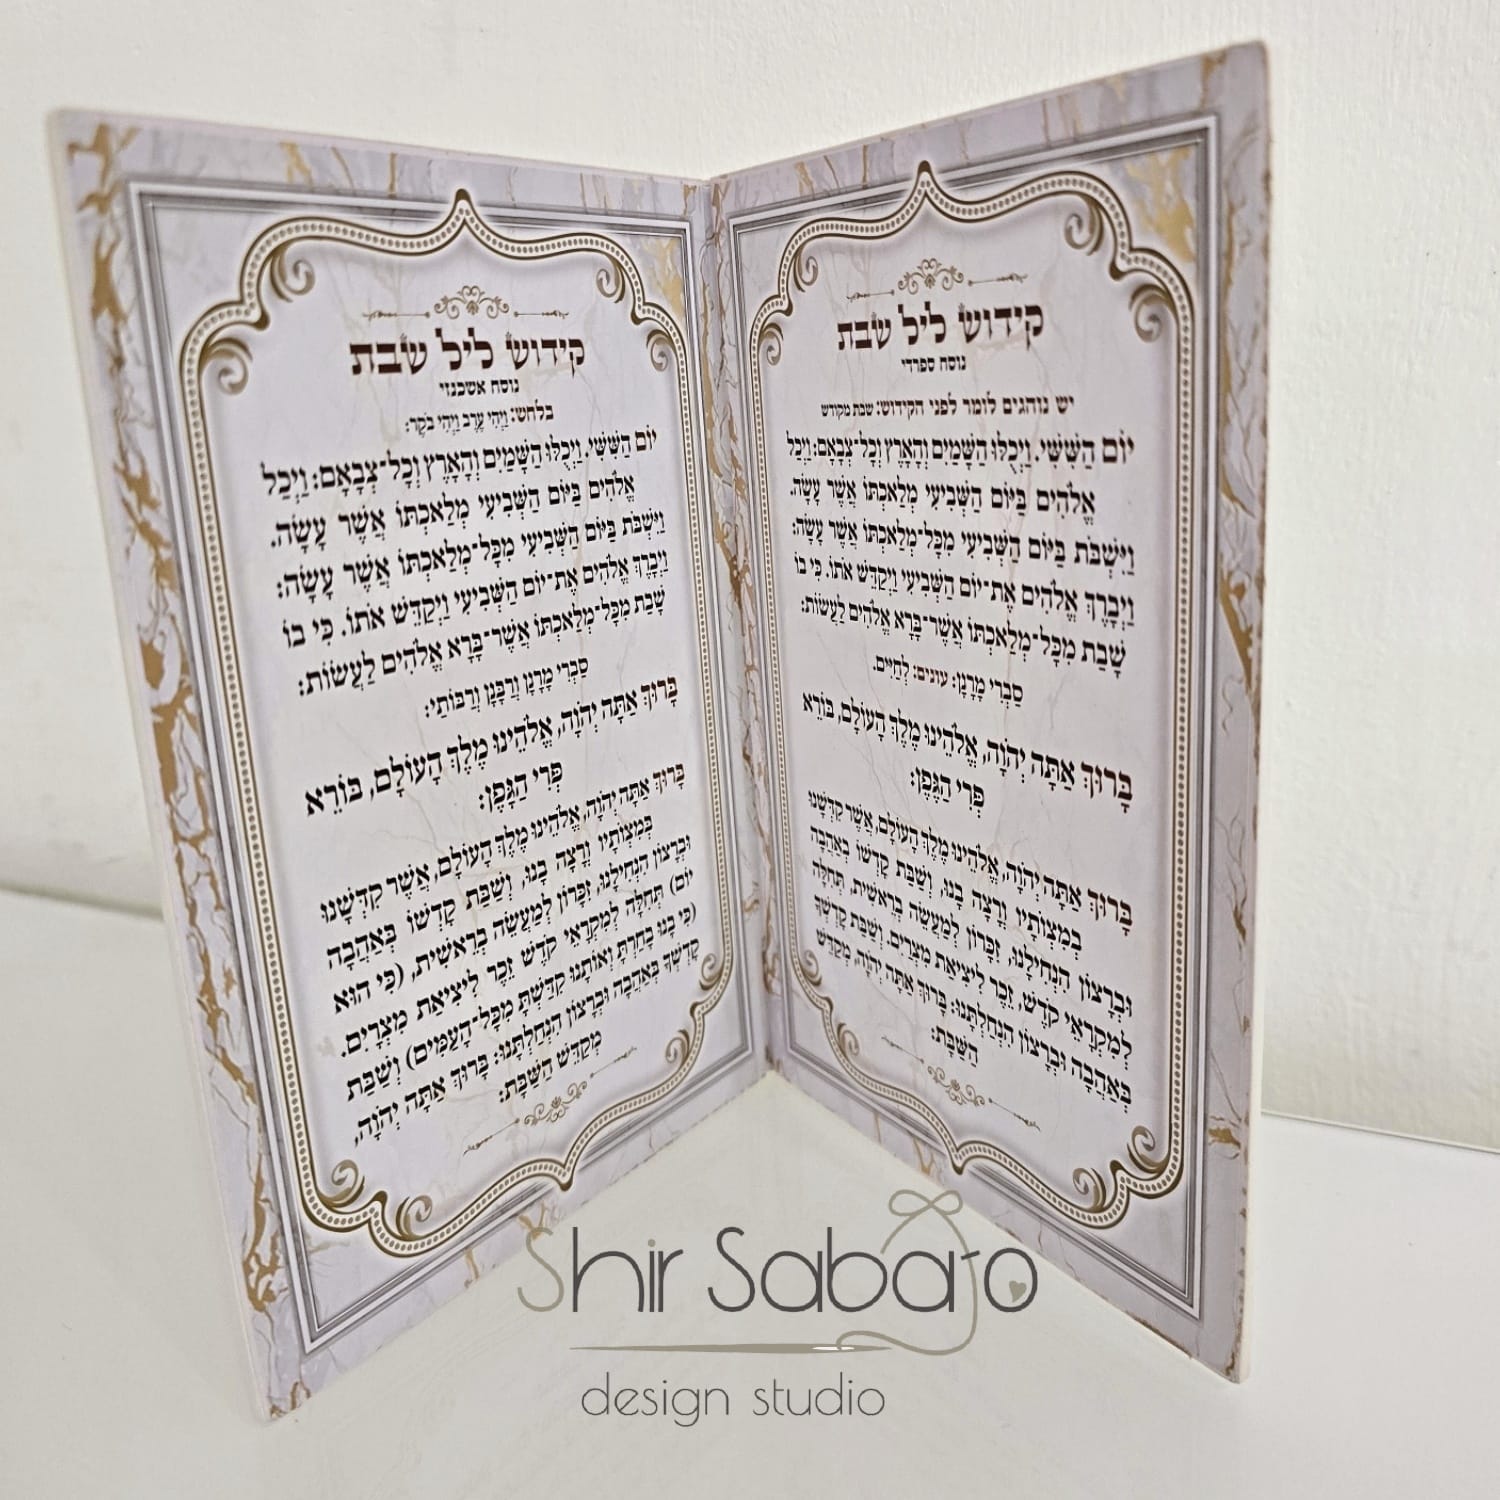 קידוש ליל שבת
נוסח ספרדי
יש נוהגים לומר לפני הקידוש: שבת מקודש
יוֹם הַשִּׁשִּׁי. וַיְכֻלּוּ הַשָּׁמַיִם וְהָאָרֶץ וְכָל־צְבָאָם: וַיְכַל
אֱלֹהִים בַּיּוֹם הַשְּׁבִיעִי מְלַאכְתּוֹ אֲשֶׁר עָשָׂה.
וַיִּשְׁבֹּת בַּיּוֹם הַשְּׁבִיעִי מִכָּל־מְלַאכְתּוֹ אֲשֶׁר עָשָׂה:
וַיְבָרֶךְ אֱלֹהִים אֶת־יוֹם הַשְּׁבִיעִי וַיְקַדֵּשׁ אֹתוֹ. כִּי בוֹ
שָׁבַת מִכָּל־מְלַאכְתּוֹ אֲשֶׁר־בָּרָא אֱלֹהִים לַעֲשׂוֹת:
סַבְרִי מָרָנָן: עונים: לְחַיִּים.
בָּרוּךְ אַתָּה יְהֹוָה, אֱלֹהֵינוּ מֶלֶךְ הָעוֹלָם, בּוֹרֵא
פְּרִי הַגֶּפֶן:
בָּרוּךְ אַתָּה יְהֹוָה, אֱלֹהֵינוּ מֶלֶךְ הָעוֹלָם, אֲשֶׁר קִדְּשָׁנוּ
בְּמִצְוֹתָיו וְרָצָה בָנוּ, וְשַׁבַּת קָדְשׁוֹ בְּאַהֲבָה
וּבְרָצוֹן הִנְחִילָנוּ, זִכָּרוֹן לְמַעֲשֵׂה בְרֵאשִׁית, תְּחִלָּה
לְמִקְרָאֵי קֹדֶשׁ, זֵכֶר לִיצִיאַת מִצְרָיִם. וְשַׁבַּת קָדְשְׁךָ
בְּאַהֲבָה וּבְרָצוֹן הִנְחַלְתָּנוּ: בָּרוּךְ אַתָּה יְהֹוָה, מְקַדֵּשׁ
הַשַּׁבָּת:
קידוש ליל שבת
נוסח אשכנזי
בלחש: וַיְהִי עֶרֶב וַיְהִי בֹקֶר:
יוֹם הַשִּׁשִּׁי. וַיְכֻלּוּ הַשָּׁמַיִם וְהָאָרֶץ וְכָל־צְבָאָם: וַיְכַל
אֱלֹהִים בַּיּוֹם הַשְּׁבִיעִי מְלַאכְתּוֹ אֲשֶׁר עָשָׂה.
וַיִּשְׁבֹּת בַּיּוֹם הַשְּׁבִיעִי מִכָּל־מְלַאכְתּוֹ אֲשֶׁר עָשָׂה:
וַיְבָרֶךְ אֱלֹהִים אֶת־יוֹם הַשְּׁבִיעִי וַיְקַדֵּשׁ אֹתוֹ. כִּי בוֹ
שָׁבַת מִכָּל־מְלַאכְתּוֹ אֲשֶׁר־בָּרָא אֱלֹהִים לַעֲשׂוֹת:
סַבְרִי מָרָנָן וְרַבָּנָן וְרַבּוֹתַי:
בָּרוּךְ אַתָּה יְהֹוָה, אֱלֹהֵינוּ מֶלֶךְ הָעוֹלָם, בּוֹרֵא
פְּרִי הַגָּפֶן:
בָּרוּךְ אַתָּה יְהֹוָה, אֱלֹהֵינוּ מֶלֶךְ הָעוֹלָם, אֲשֶׁר קִדְּשָׁנוּ
בְּמִצְוֹתָיו וְרָצָה בָנוּ, וְשַׁבַּת קָדְשׁוֹ בְּאַהֲבָה
וּבְרָצוֹן הִנְחִילָנוּ, זִכָּרוֹן לְמַעֲשֵׂה בְרֵאשִׁית, (כִּי הוּא
יוֹם) תְּחִלָּה לְמִקְרָאֵי קֹדֶשׁ זֵכֶר לִיצִיאַת מִצְרָיִם.
(כִּי בָנוּ בָחַרְתָּ וְאוֹתָנוּ קִדַּשְׁתָּ מִכָּל־הָעַמִּים) וְשַׁבַּת
קָדְשְׁךָ בְּאַהֲבָה וּבְרָצוֹן הִנְחַלְתָּנוּ: בָּרוּךְ אַתָּה יְהֹוָה,
מְקַדֵּשׁ הַשַּׁבָּת:
Shir Sabajo
design studio